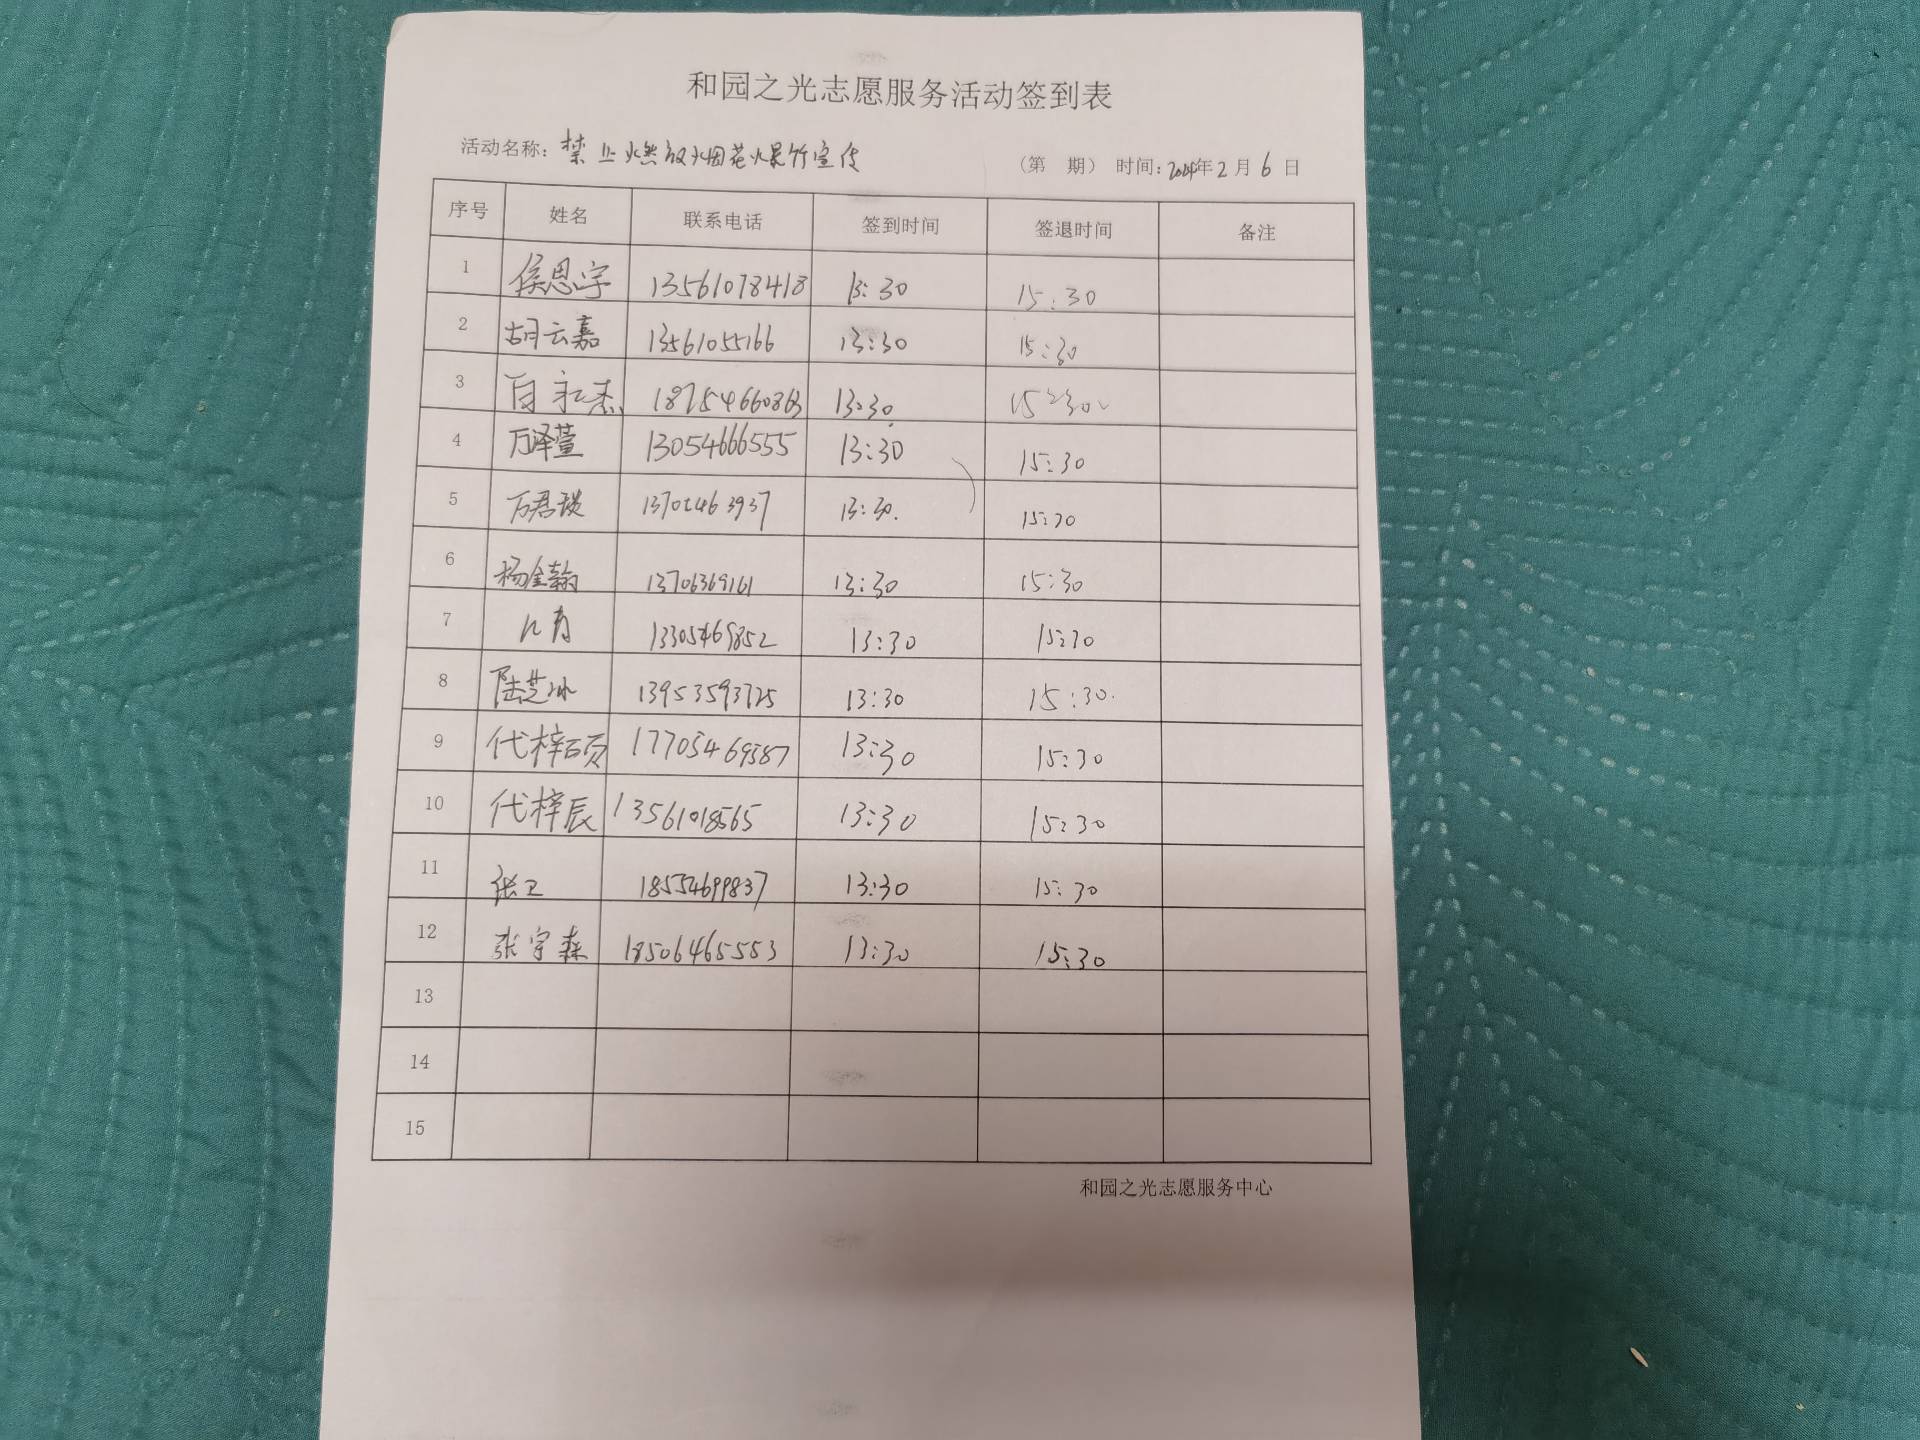 和园之光志愿服务活动签到表
活动名称: 禁止燃放烟花爆竹宣传 (第 期) 时间: 2024年 2 月 6 日
序号 姓名 联系电话 签到时间 签退时间 备注
1 侯思宇 13561078418 13:30 15:30
2 胡云嘉 13561055166 13:30 15:30
3 13:30 15:30
4 万泽萱 13054666555 13:30 15:30
5 万君瑛 13:30. 15:30
6 杨金翰 13706369161 13:30 15:30
7 13305469852 13:30 15:30
8 陆芝冰 13953593725 13:30 15:30.
9 代梓硕 17705469587 13:30 15:30
10 代梓辰 13561018565 13:30 15:30
11 张卫 18554699837 13:30 15:30
12 张宇森 18506465553 13:30 15:30
13
14
15
和园之光志愿服务中心